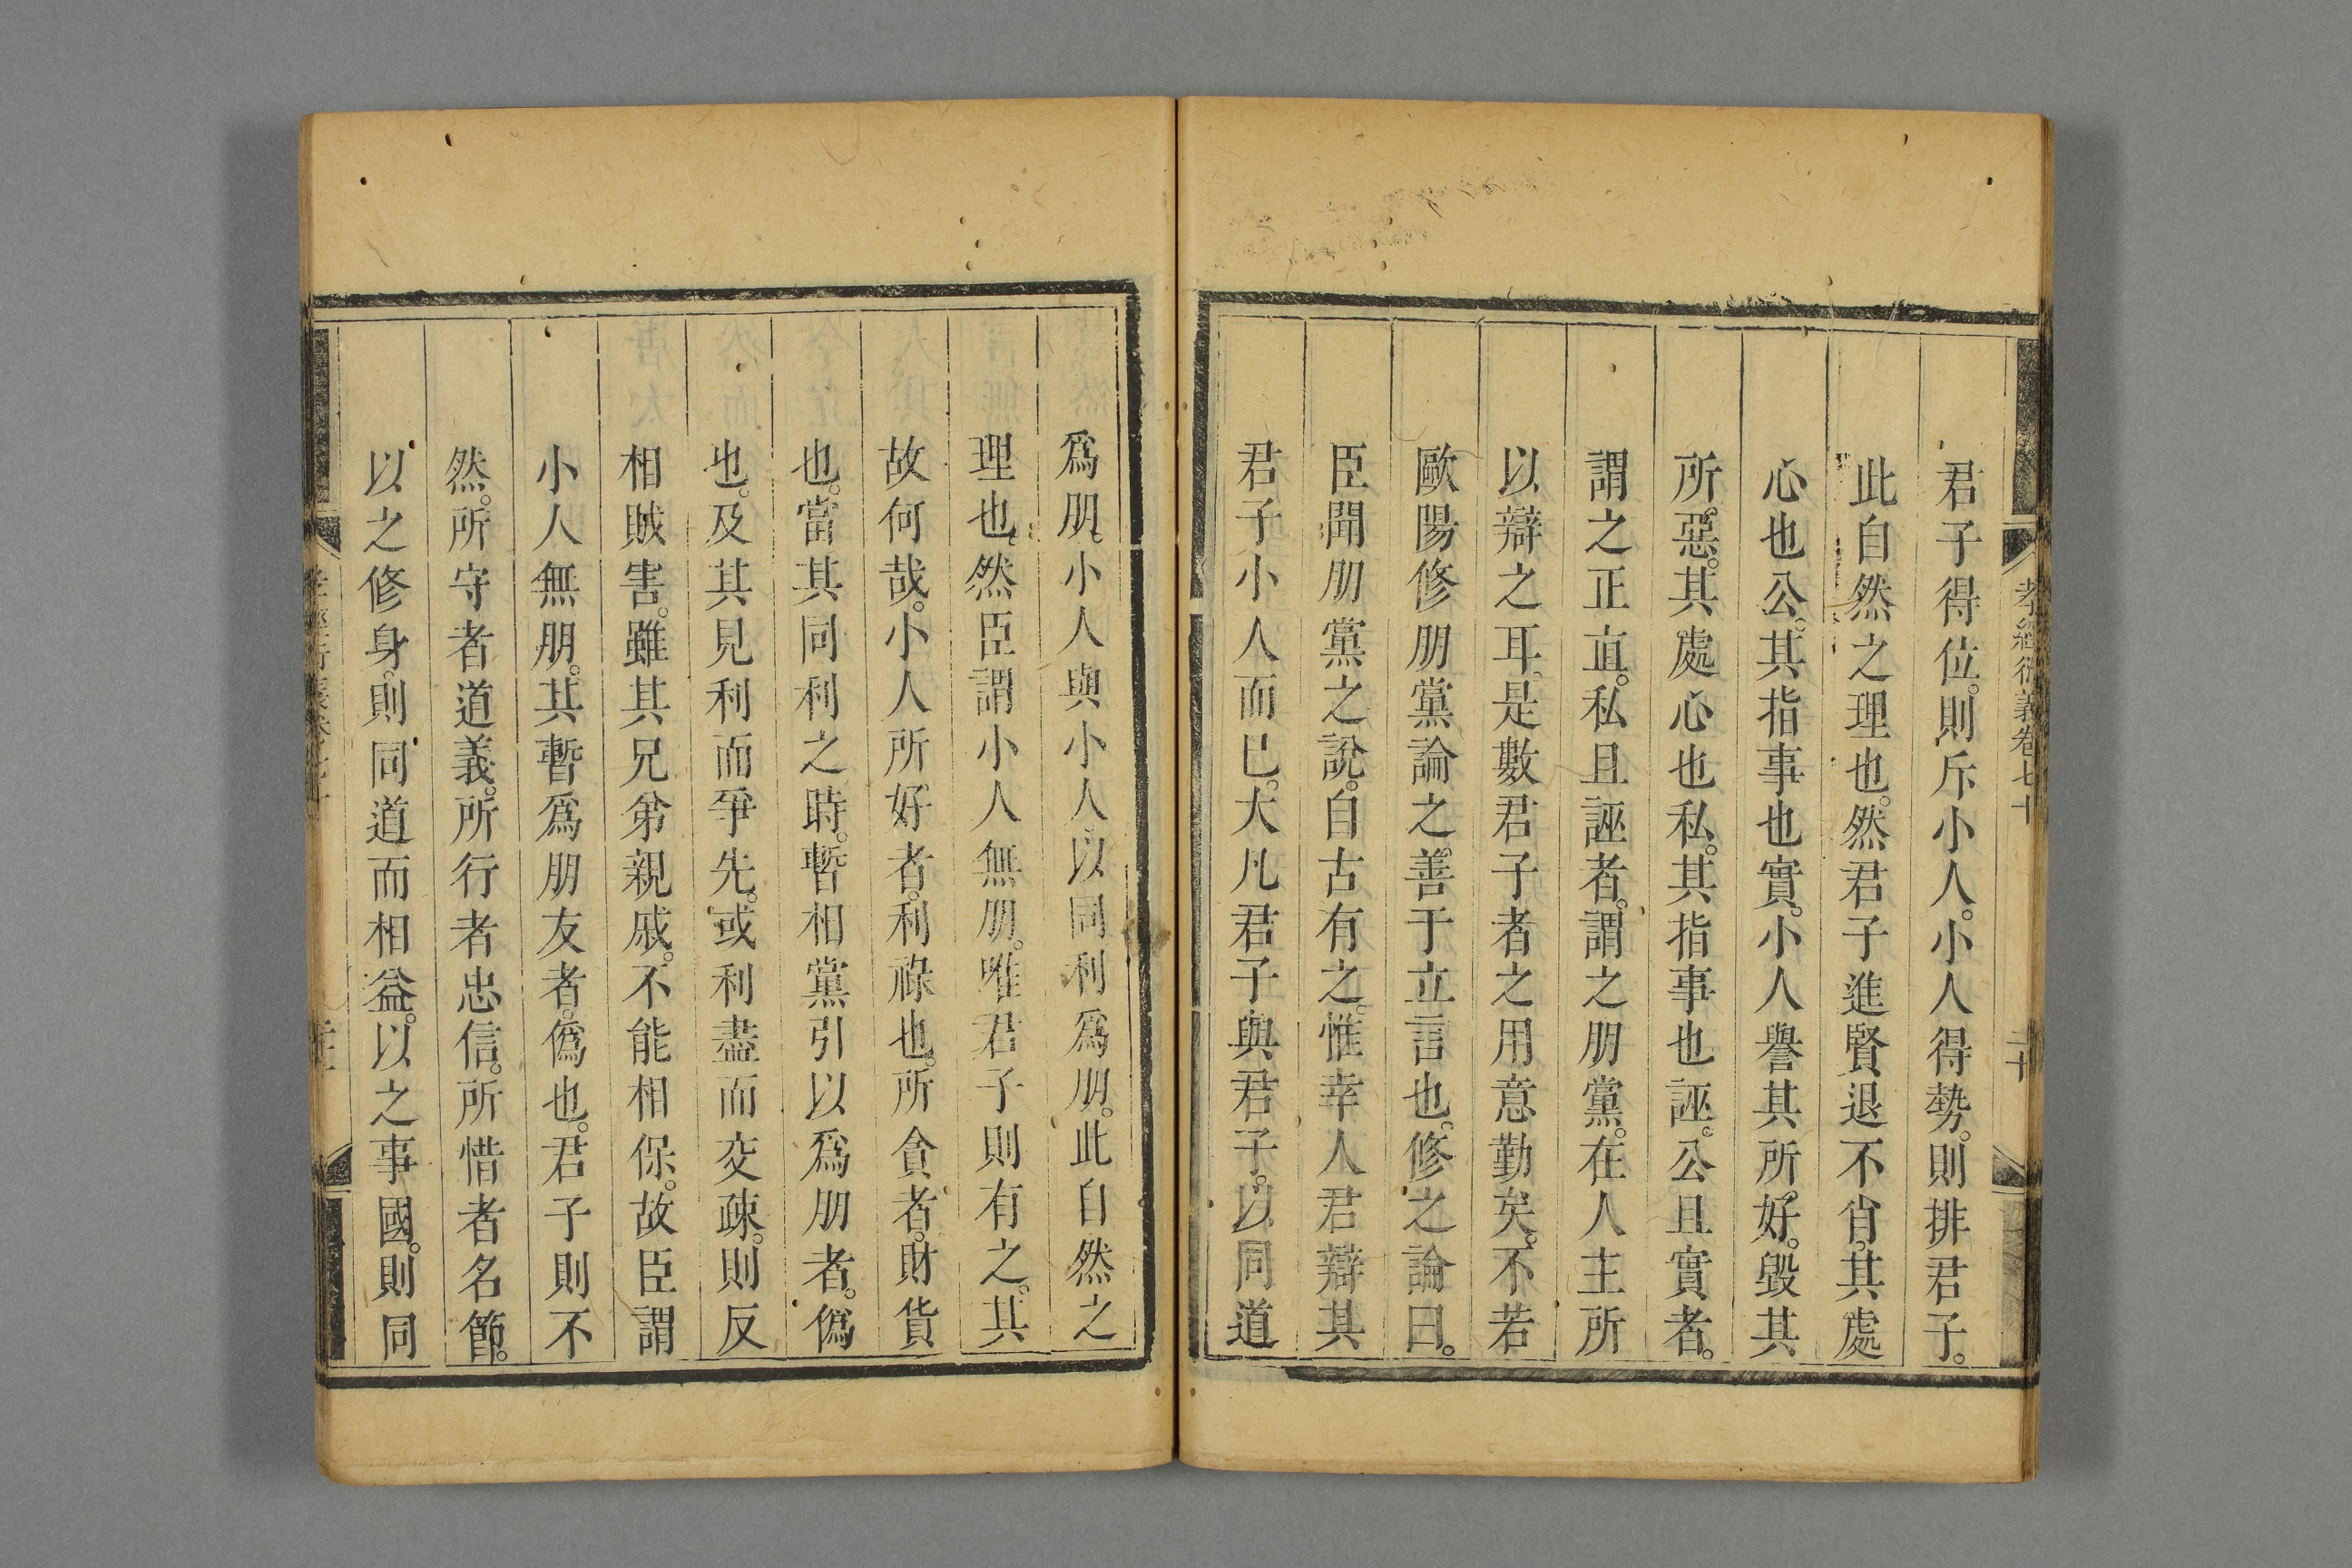 孝經衍義卷七十
二十
君子得位。則斥小人。小人得勢。則排君子。
此自然之理也。然君子進賢退不肖。其處
心也公。其指事也實。小人譽其所好。毀其
所惡。其處心也私。其指事也誣。公且實者。
謂之正直。私且誣者。謂之朋黨。在人主所
以辯之耳。是數君子者之用意勤矣。不若
歐陽修朋黨論之善于立言也。修之論曰。
臣聞朋黨之說。自古有之。惟幸人君辯其
君子小人而已。大凡君子與君子。以同道
爲朋。小人與小人。以同利爲朋。此自然之
理也。然臣謂小人無朋。唯君子則有之。其
故何哉。小人所好者。利祿也。所貪者。財貨
也。當其同利之時。暫相黨引以爲朋者。僞
也。及其見利而爭先。或利盡而交疎。則反
相賊害。雖其兄弟親戚。不能相保。故臣謂
小人無朋。其暫爲朋友者。僞也。君子則不
然。所守者道義。所行者忠信。所惜者名節。
以之修身。則同道而相益。以之事國。則同